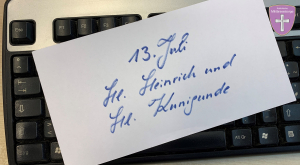 13. Juli
Hl. Heinrich und
Hl. Kunigunde